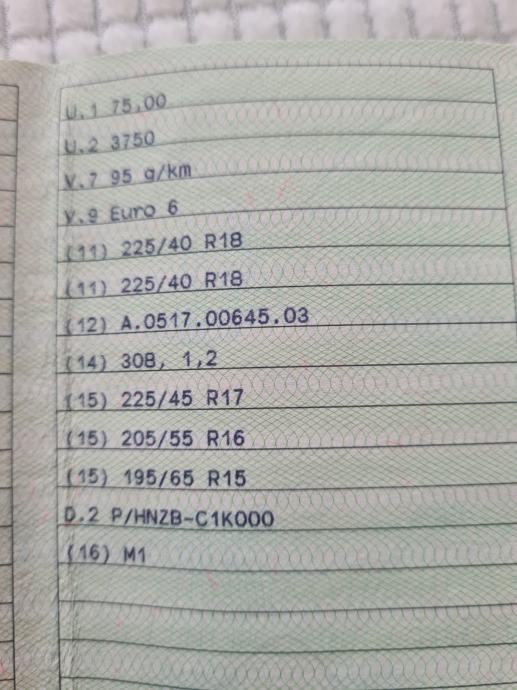 U.1 75,00
U.2 3750
V.7 95 g/km
V.9 Euro 6
(11) 225/40 R18
(11) 225/40 R18
(12) A.0517.00645.03
(14) 308, 1,2
(15) 225/45 R17
(15) 205/55 R16
(15) 195/65 R15
D.2 P/HNZB-C1K000
(16) M1